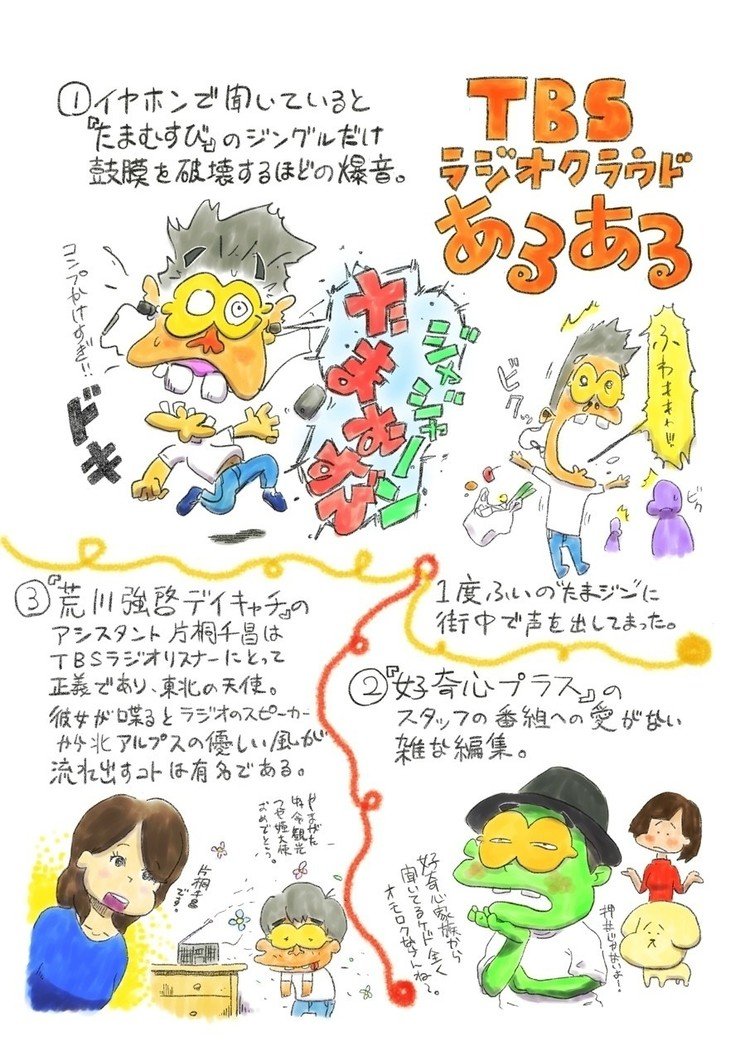 TBS
ラジオクラウド
あるある
①イヤホンで聞いていると
『たまむすび』のジングルだけ
鼓膜を破壊するほどの爆音。
コンプかけすぎ!!
ドキ
ジャジャーン
たまむすび
ビクッ
ふわぁぁぁ!!!
ビク
1度ふいの"たまジン"に
街中で声を出してまった。
②『好奇心プラス』の
スタッフの番組への愛がない
雑な編集。
好奇心家族から
聞いてるケド全く
オモロクないしね〜。
③『荒川強啓デイキャッチ』の
アシスタント片桐千晶は
TBSラジオリスナーにとって
正義であり、東北の天使。
彼女が喋るとラジオのスピーカー
から北アルプスの優しい風が
流れ出すコトは有名である。
片桐千晶
です。
やまがた
特命観光
つや姫大使
おめでとう。